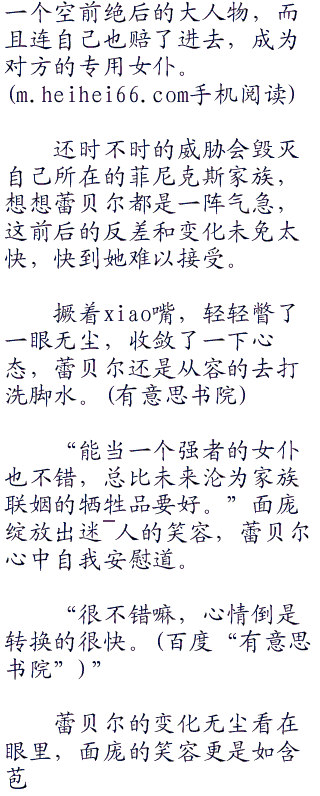 一个空前绝后的大人物，而
且连自己也赔了进去，成为
对方的专用女仆。
(m.heihei66.com手机阅读)
还时不时的威胁会毁灭
自己所在的菲尼克斯家族，
想想蕾贝尔都是一阵气急，
这前后的反差和变化未免太
快，快到她难以接受。
撅着xiao嘴，轻轻瞥了
一眼无尘，收敛了一下心
态，蕾贝尔还是从容的去打
洗脚水。(有意思书院)
“能当一个强者的女仆
也不错，总比未来沦为家族
联姻的牺牲品要好。”面庞
绽放出迷¯人的笑容，蕾贝尔
心中自我安慰道。
“很不错嘛，心情倒是
转换的很快。(百度“有意思
书院”)”
蕾贝尔的变化无尘看在
眼里，面庞的笑容更是如含
苞